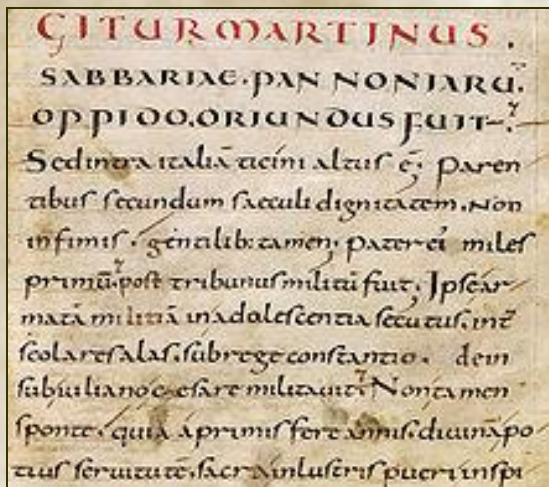 GITUR MARTINUS.
SABBARIAE. PANNONIARŪ
OPPIDO. ORIUNDUS FUIT.
Sed intra italiā ticini altus ē; Paren
tibus secundum saeculi dignitatem. Non
infimis. gentilib: tamen; Pater ei' miles
primū. post tribunus militū fuit; Ipse ar
matā militiā in adolescentia secutus. int
scolares alas. sub rege constantio. dein
sub iuliano cesare militauit; Non tamen
sponte. quia a primis fere annis. diuinā po
tius seruitutē. sacra inlustris pueri inspi